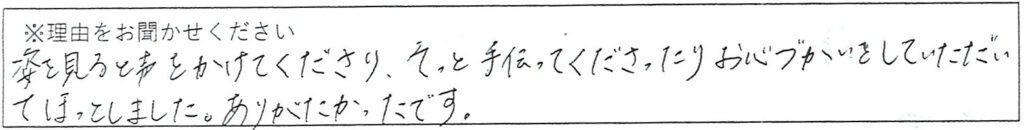 ※理由をお聞かせください
姿を見ると声をかけてくださり、そっと手伝ってくださったりお心づかいをしていただだい
てほっとしました。ありがたかったです。